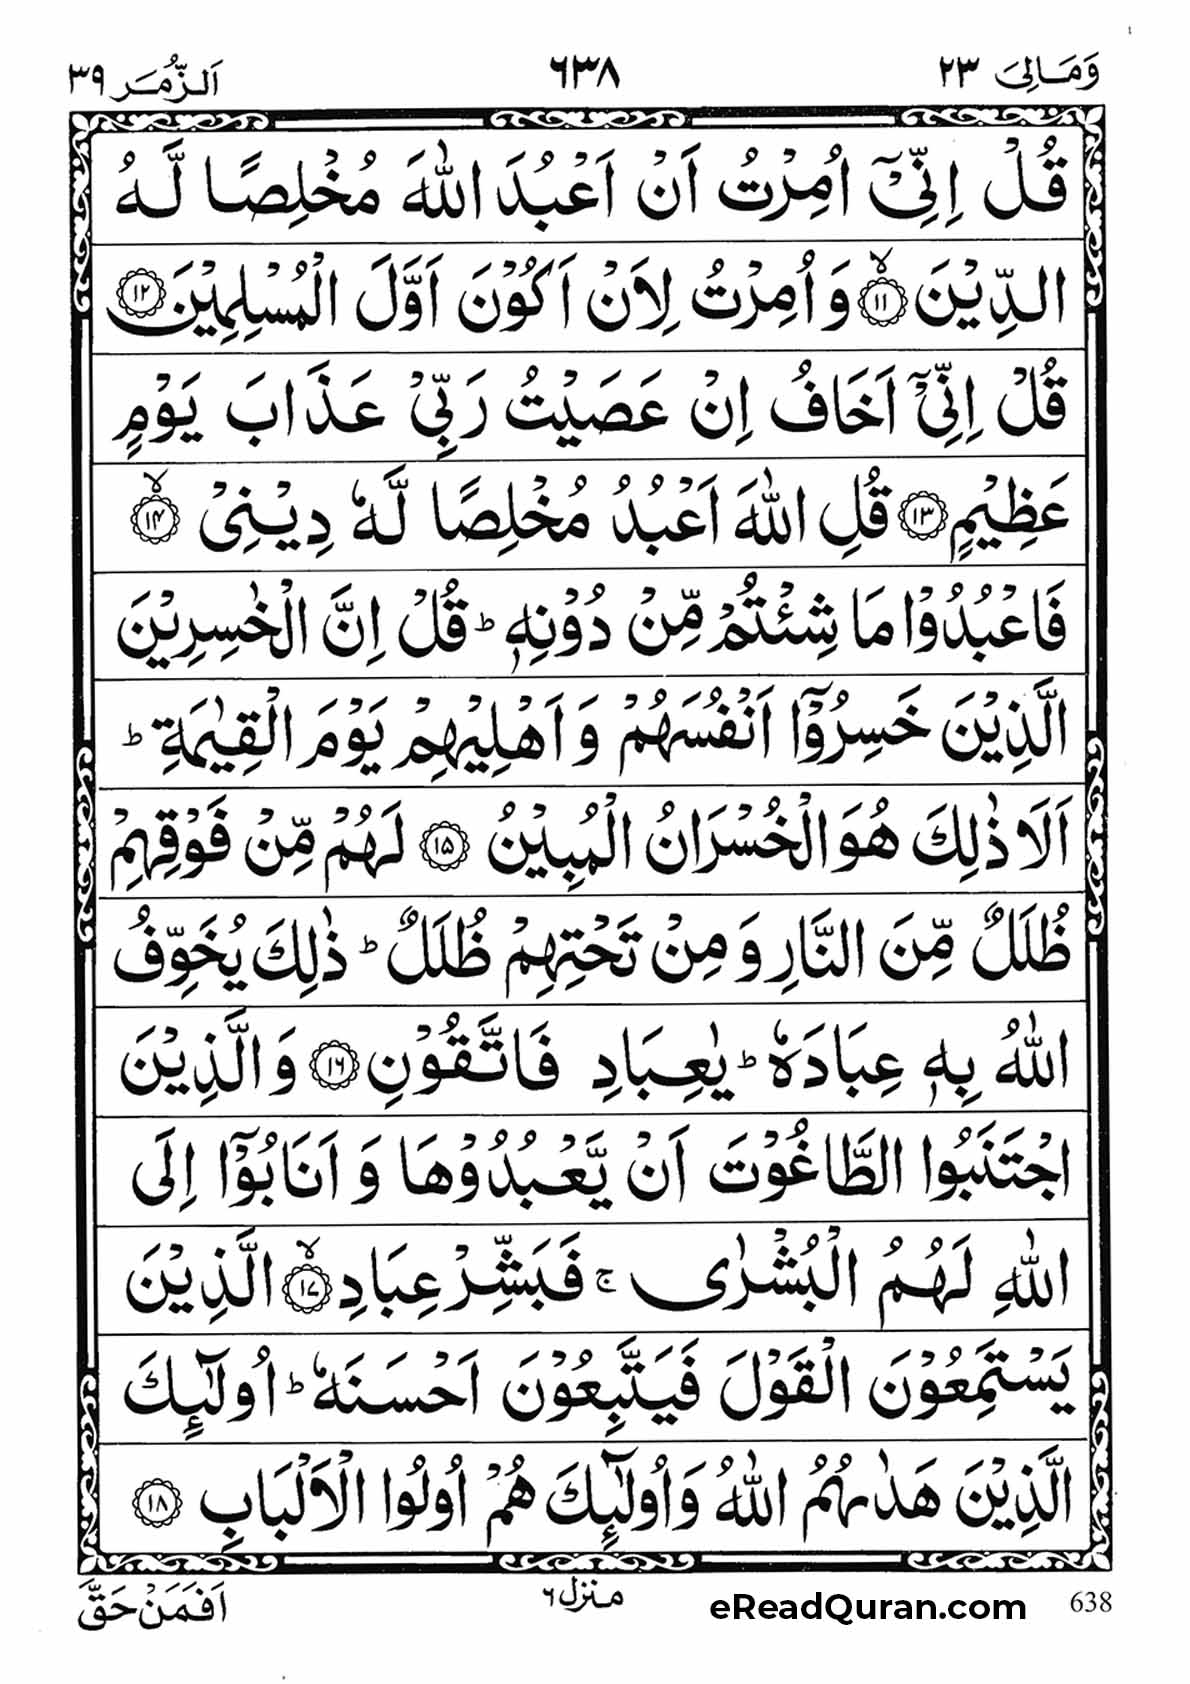 وَمَالِیَ ٢٣ ٦٣٨ اَلزُّمَر ٣٩
قُلْ اِنِّیْۤ اُمِرْتُ اَنْ اَعْبُدَ اللّٰهَ مُخْلِصًا لَّهُ
الدِّیْنَ ۙ‏﴿۱۱﴾ وَ اُمِرْتُ لِاَنْ اَكُوْنَ اَوَّلَ الْمُسْلِمِیْنَ ﴿۱۲﴾
قُلْ اِنِّیْۤ اَخَافُ اِنْ عَصَیْتُ رَبِّیْ عَذَابَ یَوْمٍ
عَظِیْمٍ ﴿۱۳﴾ قُلِ اللّٰهَ اَعْبُدُ مُخْلِصًا لَّهٗ دِیْنِیْ ۙ‏﴿۱۴﴾
فَاعْبُدُوْا مَا شِئْتُمْ مِّنْ دُوْنِهٖ ؕ قُلْ اِنَّ الْخٰسِرِیْنَ
الَّذِیْنَ خَسِرُوْۤا اَنْفُسَهُمْ وَ اَهْلِیْهِمْ یَوْمَ الْقِیٰمَةِ ؕ
اَلَا ذٰلِكَ هُوَ الْخُسْرَانُ الْمُبِیْنُ ﴿۱۵﴾ لَهُمْ مِّنْ فَوْقِهِمْ
ظُلَلٌ مِّنَ النَّارِ وَ مِنْ تَحْتِهِمْ ظُلَلٌ ؕ ذٰلِكَ یُخَوِّفُ
اللّٰهُ بِهٖ عِبَادَهٗ ؕ یٰعِبَادِ فَاتَّقُوْنِ ﴿۱۶﴾ وَ الَّذِیْنَ
اجْتَنَبُوا الطَّاغُوْتَ اَنْ یَّعْبُدُوْهَا وَ اَنَابُوْۤا اِلَی
اللّٰهِ لَهُمُ الْبُشْرٰی ۚ فَبَشِّرْ عِبَادِ ۙ‏﴿۱۷﴾ الَّذِیْنَ
یَسْتَمِعُوْنَ الْقَوْلَ فَیَتَّبِعُوْنَ اَحْسَنَهٗ ؕ اُولٰٓئِكَ
الَّذِیْنَ هَدٰىهُمُ اللّٰهُ وَ اُولٰٓئِكَ هُمْ اُولُوا الْاَلْبَابِ ﴿۱۸﴾
638 eReadQuran.com منزل ٦ اَفَمَنْ حَقَّ